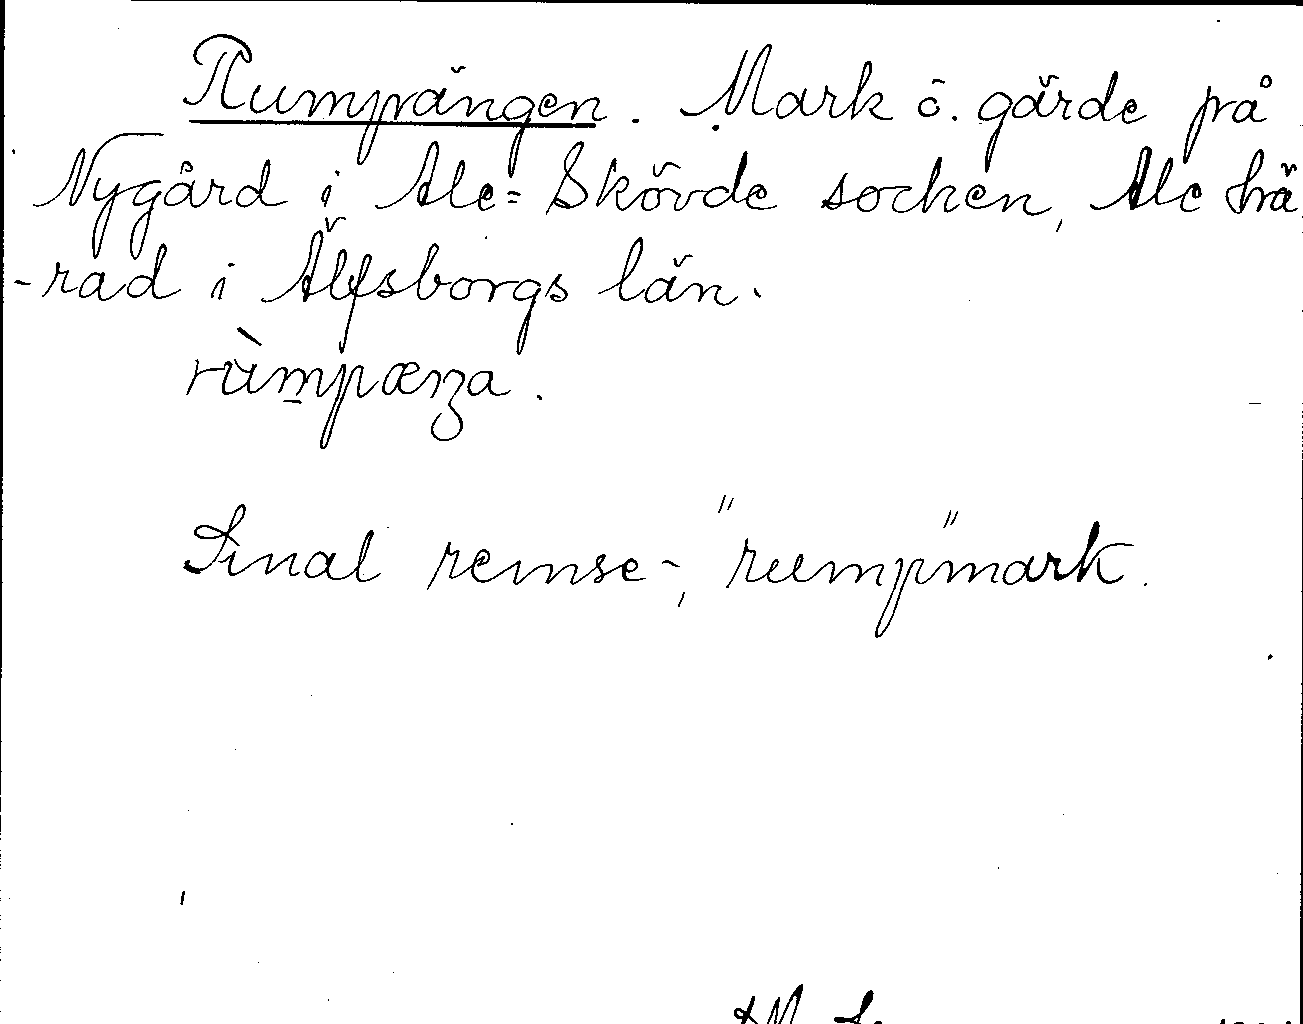 Rumpängen. Mark ö. gärde på
Nygård i Ale-Skövde socken, Ale hä
-rad i Älfsborgs län.
rùmpæŋa.
Smal remse-, "rump"mark.